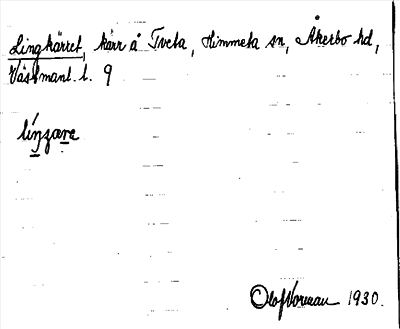 Lingkärret, kärr å Tveta, Himmeta sn, Åkerbo hd,
Västmanl. l. 9
Olof 1930.